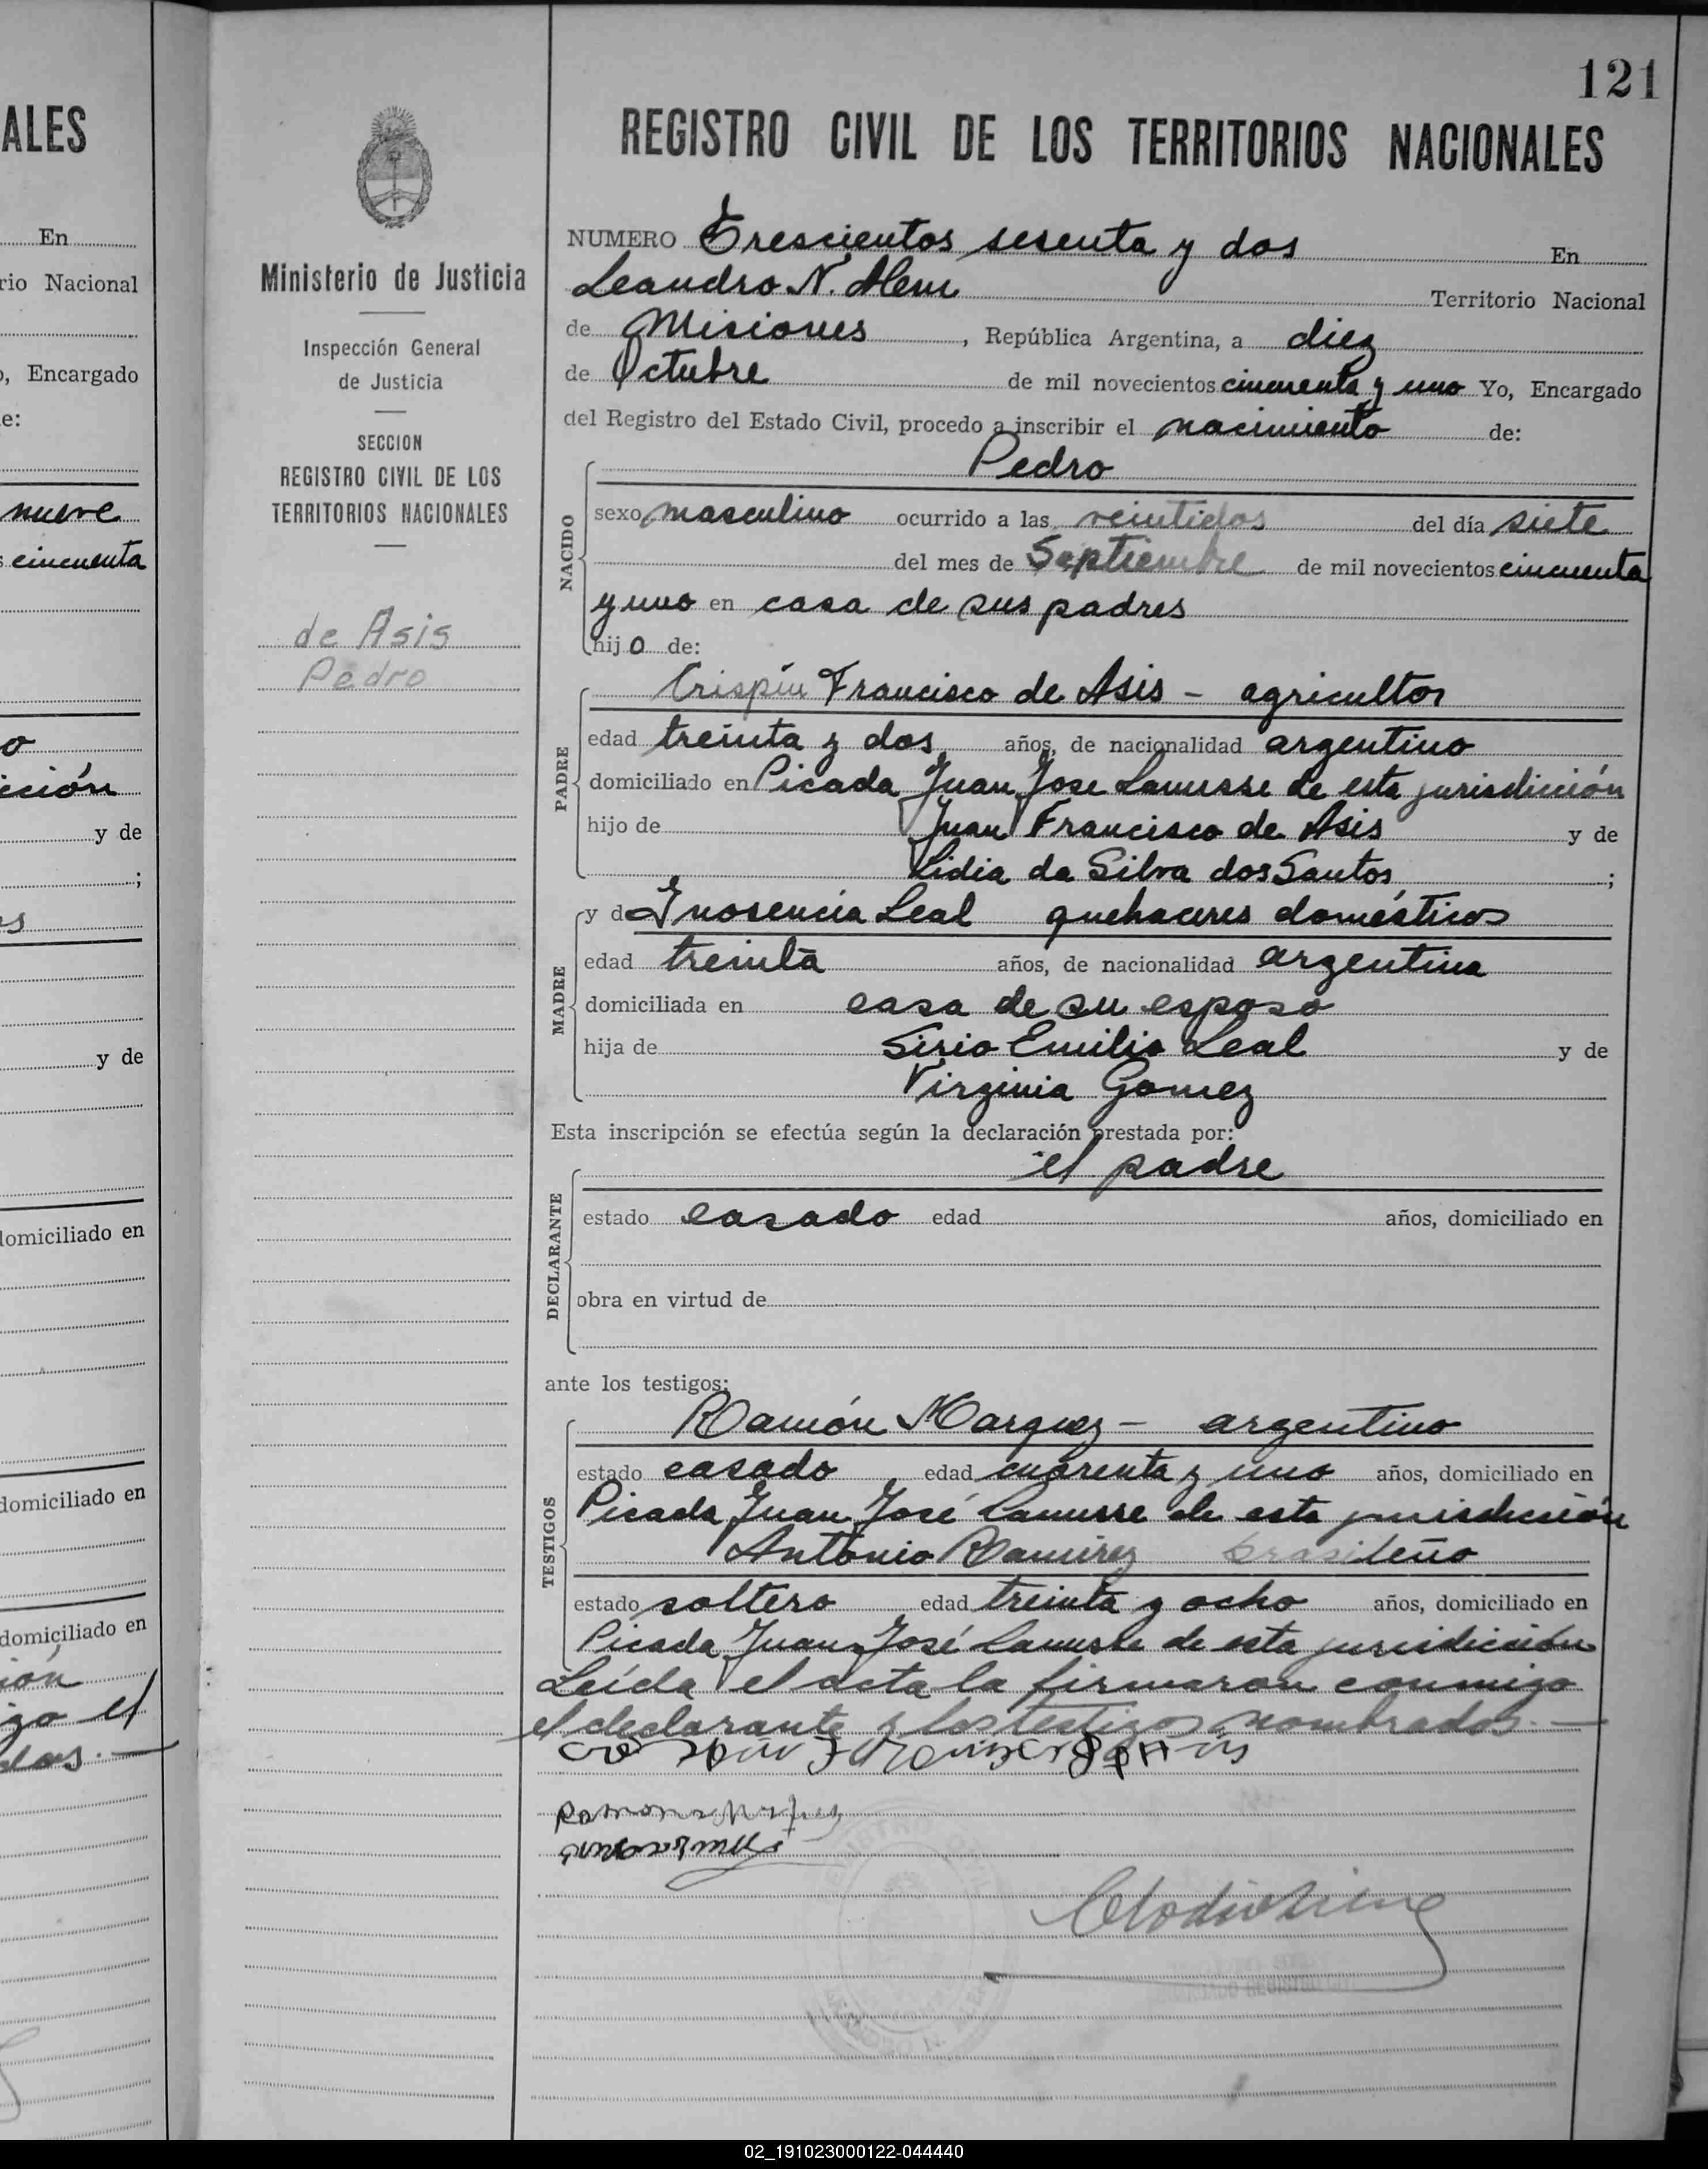 121
REGISTRO CIVIL DE LOS TERRITORIOS NACIONALES
ALES
En
rio Nacional
, Encargado
e:
nueve
cincuenta
o
ición
y de
;
s
y de
domiciliado en
domiciliado en
domiciliado en
ión
go el
dos.—
Ministerio de Justicia
Inspección General
de Justicia
SECCION
REGISTRO CIVIL DE LOS
TERRITORIOS NACIONALES
de Asis
Pedro
NUMERO Trescientos sesenta y dos En
Leandro N. Alem Territorio Nacional
de Misiones, República Argentina, a diez
de Octubre de mil novecientos cincuenta y uno Yo, Encargado
del Registro del Estado Civil, procedo a inscribir el nacimiento de:
Pedro
NACIDO
sexo masculino ocurrido a las veintidos del día siete
del mes de Septiembre de mil novecientos cincuenta
y uno en casa de sus padres
hijo de:
PADRE
Crispín Francisco de Asis - agricultor
edad treinta y dos años, de nacionalidad argentino
domiciliado en Picada Juan Jose Lanusse de esta jurisdicción
hijo de Juan Francisco de Asis y de
Lidia da Silva dos Santos ;
MADRE
y de Inosencia Leal quehaceres domésticos
edad treinta años, de nacionalidad argentina
domiciliada en casa de su esposo
hija de Sirio Emilio Leal y de
Virginia Gomez
Esta inscripción se efectúa según la declaración prestada por:
el padre
DECLARANTE
estado casado edad años, domiciliado en
obra en virtud de
ante los testigos:
TESTIGOS
Ramón Marquez - argentino
estado casado edad cuarenta y uno años, domiciliado en
Picada Juan José Lanusse de esta jurisdicción
Antonio Ramirez brasileño
estado soltero edad treinta y ocho años, domiciliado en
Picada Juan José Lanusse de esta jurisdicción
Leída el acta la firmaron conmigo
el declarante y los testigos nombrados.—
02_191023000122-044440